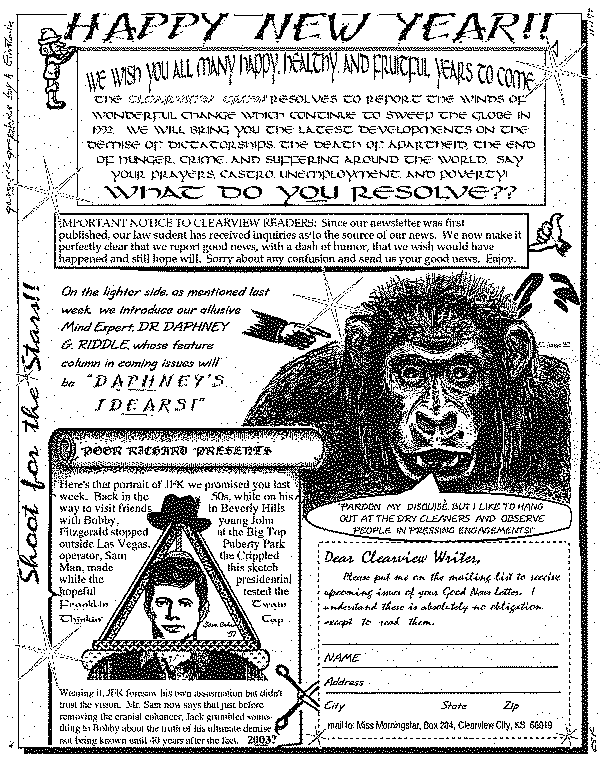 HAPPY NEW YEAR!!
WE WISH YOU ALL MANY HAPPY, HEALTHY AND FRUITFUL YEARS TO COME
THE CLEARVIEW CREW RESOLVES TO REPORT THE WINDS OF
WONDERFUL CHANGE WHICH CONTINUE TO SWEEP THE GLOBE IN
1992. WE WILL BRING YOU THE LATEST DEVELOPMENTS ON THE
DEMISE OF DICTATORSHIPS, THE DEATH OF APARTHEID, THE END
OF HUNGER, CRIME, AND SUFFERING AROUND THE WORLD. SAY
YOUR PRAYERS, CASTRO, UNEMPLOYMENT, AND POVERTY!
WHAT DO YOU RESOLVE??
IMPORTANT NOTICE TO CLEARVIEW READERS: Since our newsletter was first
published, our law sudent has received inquiries as to the source of our news. We now make it
perfectly clear that we report good news, with a dash of humor, that we wish would have
happened and still hope will. Sorry about any confusion and send us your good news. Enjoy.
Shoot for the Stars!!
On the lighter side, as mentioned last
week, we introduce our allusive
Mind Expert, DR DAPHNEY
G. RIDDLE, whose feature
column in coming issues will
be "DAPHNEY'S
IDEARS!"
POOR RICHARD PRESENTS
Here's that portrait of JFK we promised you last
week. Back in the 50s, while on his
way to visit friends in Beverly Hills
with Bobby, young John
Fitzgerald stopped at the Big Top
outside Las Vegas. Puberty Park
operator, Sam the Crippled
Man, made this sketch
while the presidential
hopeful tested the
Franklin Twain
Thinkin' Cap
Wearing it, JFK foresaw his own assassination but didn't
trust the vision. Mr. Sam now says that just before
removing the cranial enhancer, Jack grumbled some-
thing to Bobby about the truth of his ultimate demise
not being known until 40 years after the fact. 2003?
"PARDON MY DISGUISE, BUT I LIKE TO HANG
OUT AT THE DRY CLEANERS AND OBSERVE
PEOPLE IN PRESSING ENGAGEMENTS!"
Dear Clearview Writer,
Please put me on the mailing list to receive
upcoming issues of your Good News Letter. I
understand there is absolutely no obligation
except to read them.
NAME
Address
City State Zip
mail to: Miss Morningstar, Box 204, Clearview City, KS 66019